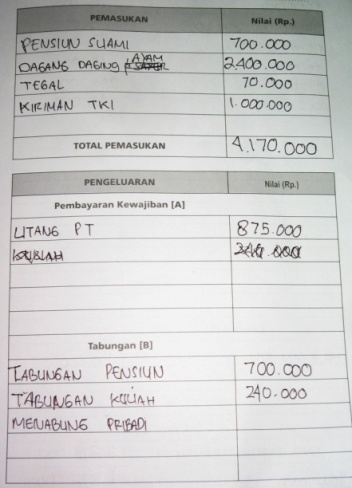 PEMASUKAN Nilai (Rp.)
PENSIUN SUAMI 700.000
DAGANG DAGING AYAM 2.400.000
TEGAL 70.000
KIRIMAN TKI 1.000.000
TOTAL PEMASUKAN 4.170.000
PENGELUARAN Nilai (Rp.)
Pembayaran Kewajiban [A]
UTANG PT 875.000
Tabungan [B]
TABUNGAN PENSIUN 700.000
TABUNGAN KULIAH 240.000
MENABUNG PRIBADI